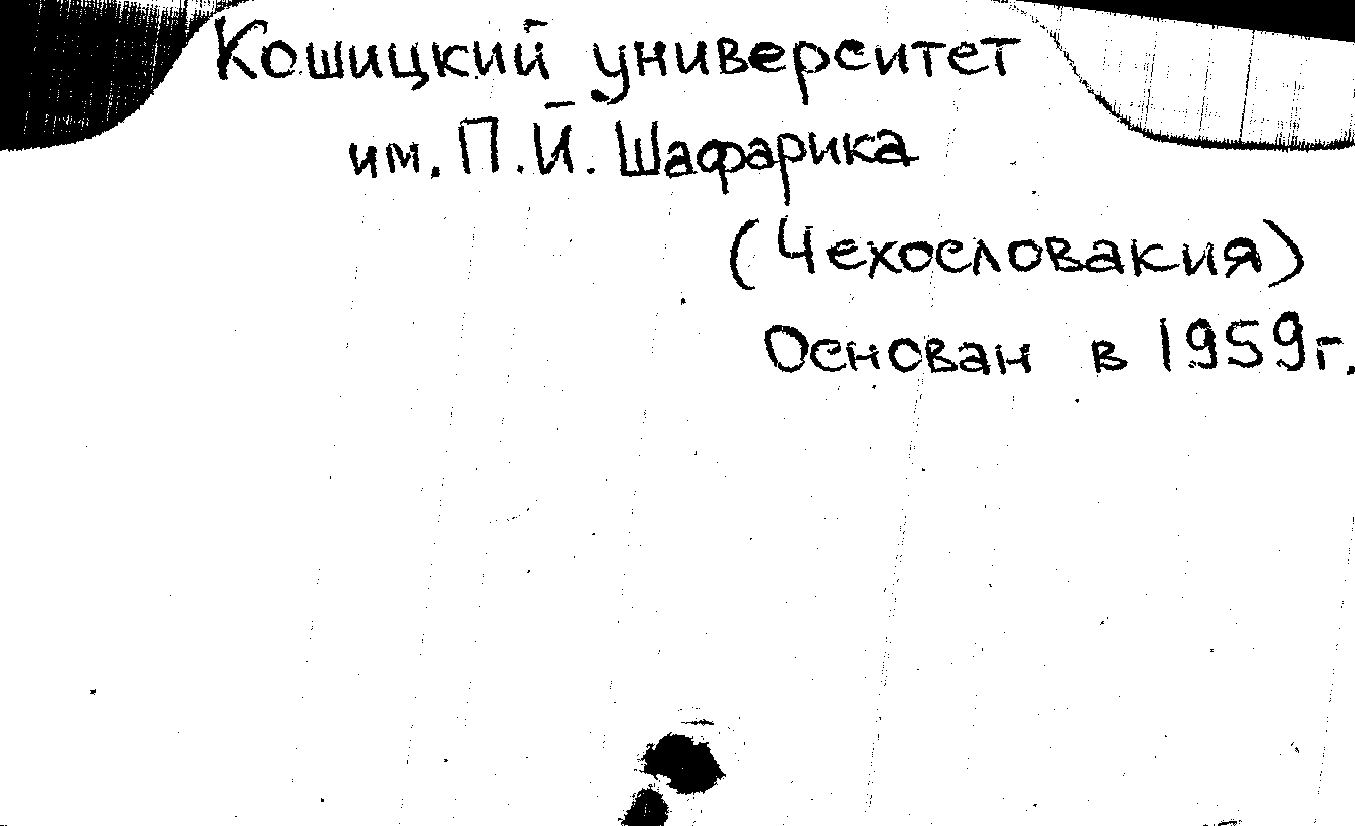 Кошицкий университет
им. П.Й. Шафарика
(Чехословакия)
Основан в 1959г.